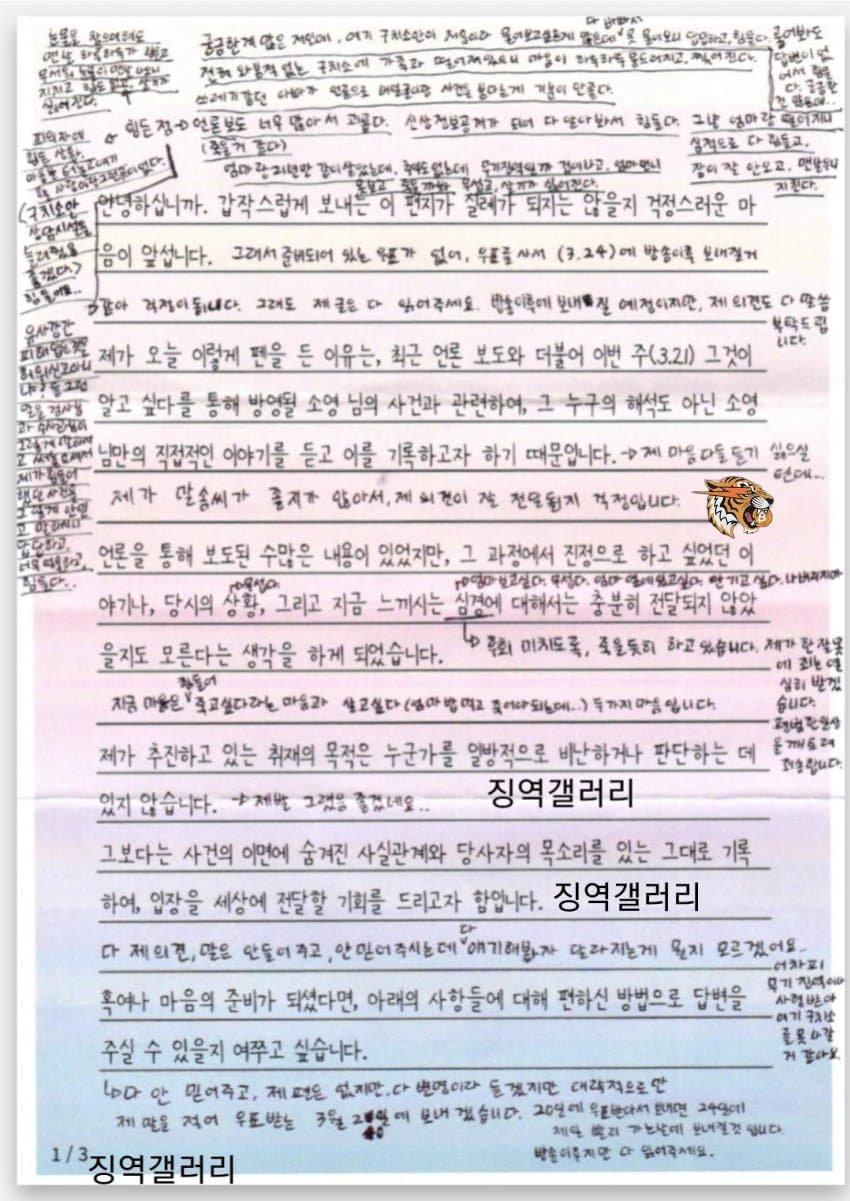 눈물을 참으려해도
궁금한게 많은 저인데, 여기 구치소안이 처음이라 물어보고싶은게 많은데 다 바빠서 못 물어보니 답답하고, 힘들다. 물어봐도
답변이 없
어서 힘들
다. 궁금한
건 많은데...
전혀 와본적 없는 구치소에 가족과 떨어져있으니 마음이 하루하루 몽드러지고, 찢어진다.
쓰레기같던 아빠가 언론으로 내얼굴이랑 사건을 봤다는게 기분이 안좋다.
힘든 점→ 언론보도 너무 많아서 괴롭다. 신상정보공개가 되어 다 알아봐서 힘들다. 그냥 엄마랑 떨어지니
(죽을거 같다)
심적으로 다 힘들고,
잠이 잘 안오고, 맨날우니
지친다.
엄마랑 21년만 같이살았는데, 추억도없는데 무기징역일까 겁이나고, 엄마언니
못보고 죽을까봐 무섭고, 살기가 싫어진다.
피의자에
힘든 상황.
(구치소안
상담시설을
늘려줬음
좋겠다.)
힘들어요..
안녕하십니까. 갑작스럽게 보내는 이 편지가 실례가 되지는 않을지 걱정스러운 마
음이 앞섭니다. 그래서 준비되어 있는 우표가 없어, 우표를 사서 (3.24)에 방송이후 보내질거
같아 걱정이됩니다. 그래도 제 글은 다 읽어주세요. 방송이후에 보내질 예정이지만, 제 의견도 다 말씀
부탁드립
니다.
제가 오늘 이렇게 펜을 든 이유는, 최근 언론 보도와 더불어 이번 주(3.21) 그것이
알고 싶다를 통해 방영될 소영 님의 사건과 관련하여, 그 누구의 해석도 아닌 소영
님만의 직접적인 이야기를 듣고 이를 기록하고자 하기 때문입니다. → 제 마음다들 듣기 싫으실
텐데...
제가 말솜씨가 좋지가 않아서, 제 의견이 잘 전달될지 걱정입니다.
유사강간
피해입은것을
허위신고아니
냐? 등 그런
말을 검사님
과 수사관님이
제가 힘들어
했던 사건을
그렇게 안믿
고 말하시니
답답하고,
너무 억울하고,
힘들다...
언론을 통해 보도된 수많은 내용이 있었지만, 그 과정에서 진정으로 하고 싶었던 이
→무섭다.
→엄마보고싶다. 무섭다. 엄마 옆에있고싶다. 안기고 싶다.
야기나, 당시의 상황, 그리고 지금 느끼시는 심경에 대해서는 충분히 전달되지 않았
을지도 모른다는 생각을 하게 되었습니다.
→ 후회 미치도록, 죽을듯히 하고있습니다. 제가 한 잘못
에 죄는 열
심히 받겠
습니다.
평범한일상
을 깨트려
죄송합니다.
지금 마음은 힘들어 죽고싶다라는 마음과 살고싶다 (엄마밥먹고 죽어야되는데...) 두가지마음입니다.
제가 추진하고 있는 취재의 목적은 누군가를 일방적으로 비난하거나 판단하는 데
있지 않습니다. → 제발 그랬음 좋겠네요..
징역갤러리
그보다는 사건의 이면에 숨겨진 사실관계와 당사자의 목소리를 있는 그대로 기록
하여, 입장을 세상에 전달할 기회를 드리고자 함입니다.
징역갤러리
다 제의견, 말은 안들어주고, 안믿어주시는데 다 얘기해봤자 달라지는게 뭘지 모르겠어요..
어차피
무기징역이나
사형받아
여기 구치소
를 못 나갈
거 같아요.
혹여나 마음의 준비가 되셨다면, 아래의 사항들에 대해 편하신 방법으로 답변을
주실 수 있을지 여쭈고 싶습니다.
→다 안 믿어주고, 제편은 없지만, 다 변명이라 듣겠지만 대략적으로만
제 말을 적어 우표받는 3월 20일에 보내겠습니다. 20일에 우표받아서 보내면 24일에
제일 빨리 가는날에 보내질것 입니다.
방송이후지만 다 읽어주세요.
1 / 3
징역갤러리